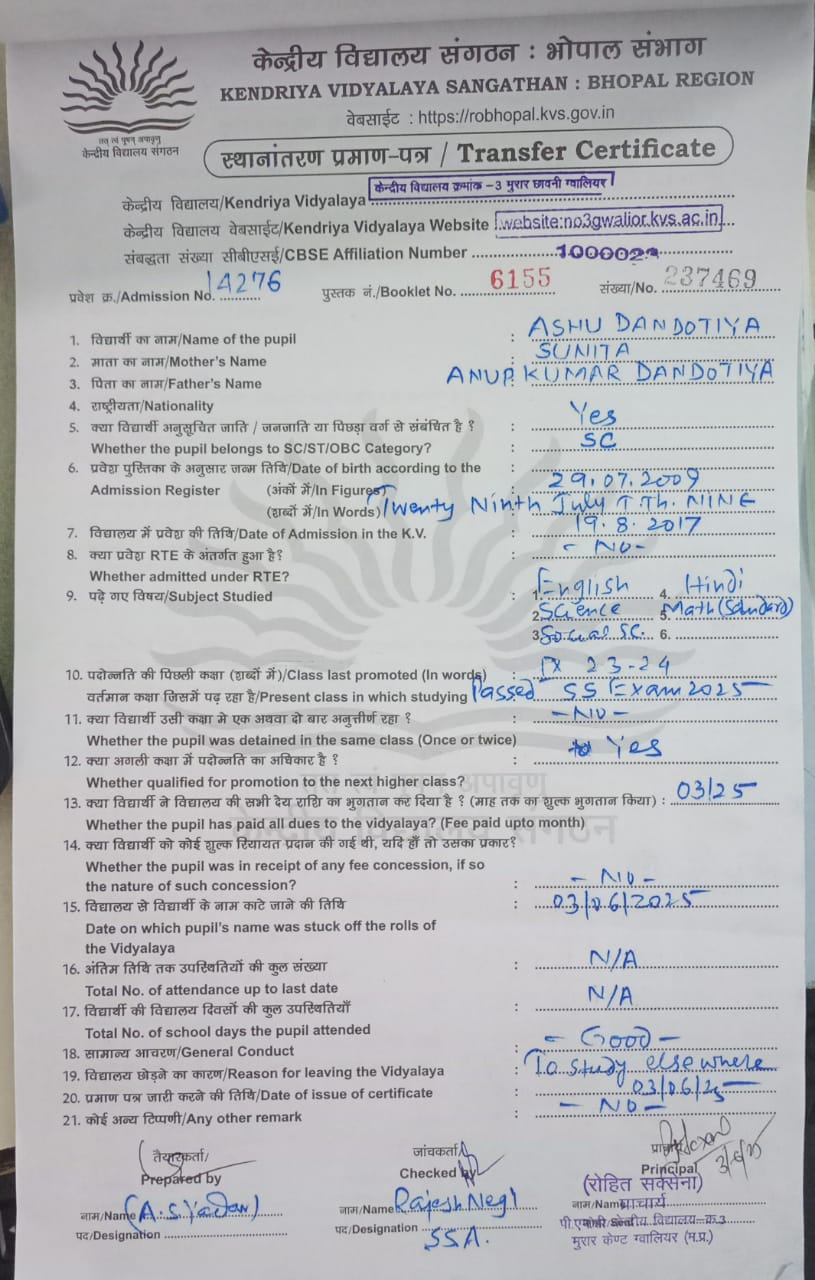 केन्द्रीय विद्यालय संगठन : भोपाल संभाग
KENDRIYA VIDYALAYA SANGATHAN : BHOPAL REGION
वेबसाईट : https://robhopal.kvs.gov.in
तत् त्वं पूषन् अपावृणु
केन्द्रीय विद्यालय संगठन
स्थानांतरण प्रमाण-पत्र / Transfer Certificate
केन्द्रीय विद्यालय/Kendriya Vidyalaya केन्द्रीय विद्यालय क्रमांक -3 मुरार छावनी ग्वालियर
केन्द्रीय विद्यालय वेबसाईट/Kendriya Vidyalaya Website website:no3gwalior.kvs.ac.in
संबद्धता संख्या सीबीएसई/CBSE Affiliation Number 100002
प्रवेश क्र./Admission No. 14276 पुस्तक नं./Booklet No. 6155 संख्या/No. 237469
1. विद्यार्थी का नाम/Name of the pupil : ASHU DANDOTIYA
2. माता का नाम/Mother's Name : SUNITA
3. पिता का नाम/Father's Name ANUP KUMAR DANDOTIYA
4. राष्ट्रीयता/Nationality
5. क्या विद्यार्थी अनुसूचित जाति / जनजाति या पिछड़ा वर्ग से संबंधित है ? : Yes
Whether the pupil belongs to SC/ST/OBC Category? : SC
6. प्रवेश पुस्तिका के अनुसार जन्म तिथि/Date of birth according to the
Admission Register (अंकों में/In Figures) : 29.07.2009
(शब्दों में/In Words) Twenty Ninth July T.Th. NINE
7. विद्यालय में प्रवेश की तिथि/Date of Admission in the K.V. : 19.8.2017
8. क्या प्रवेश RTE के अंतर्गत हुआ है? : - NO -
Whether admitted under RTE?
9. पढ़े गए विषय/Subject Studied : 1. English 4. Hindi
2. Science 5. Math (Standard)
3. Social Sc. 6.
10. पदोन्नति की पिछली कक्षा (शब्दों में)/Class last promoted (In words) : IX 23-24
वर्तमान कक्षा जिसमें पढ़ रहा है/Present class in which studying Passed SS Exam 2025
11. क्या विद्यार्थी उसी कक्षा मे एक अथवा दो बार अनुत्तीर्ण रहा ? : - NO -
Whether the pupil was detained in the same class (Once or twice)
12. क्या अगली कक्षा में पदोन्नति का अधिकार है ? : Yes
Whether qualified for promotion to the next higher class?
13. क्या विद्यार्थी ने विद्यालय की सभी देय राशि का भुगतान कर दिया है ? (माह तक का शुल्क भुगतान किया) : 03/25
Whether the pupil has paid all dues to the vidyalaya? (Fee paid upto month)
14. क्या विद्यार्थी को कोई शुल्क रियायत प्रदान की गई थी, यदि हाँ तो उसका प्रकार?
Whether the pupil was in receipt of any fee concession, if so
the nature of such concession? : - NO -
15. विद्यालय से विद्यार्थी के नाम काटे जाने की तिथि : 03/06/2025
Date on which pupil's name was stuck off the rolls of
the Vidyalaya
16. अंतिम तिथि तक उपस्थितियों की कुल संख्या : N/A
Total No. of attendance up to last date
17. विद्यार्थी की विद्यालय दिवसों की कुल उपस्थितियाँ : N/A
Total No. of school days the pupil attended
18. सामान्य आचरण/General Conduct : - Good -
19. विद्यालय छोड़ने का कारण/Reason for leaving the Vidyalaya : To study elsewhere
20. प्रमाण पत्र जारी करने की तिथि/Date of issue of certificate : 03/06/25
21. कोई अन्य टिप्पणी/Any other remark : - NO -
तैयारकर्ता/ जांचकर्ता/
Prepared by Checked by Principal 3/6/25
(रोहित सक्सेना)
नाम/Name (A.S. Yadav) नाम/Name Rajesh Negi नाम/Name प्राचार्य
पद/Designation पद/Designation SSA. केन्द्रीय विद्यालय-क्र.3
मुरार केण्ट ग्वालियर (म.प्र.)